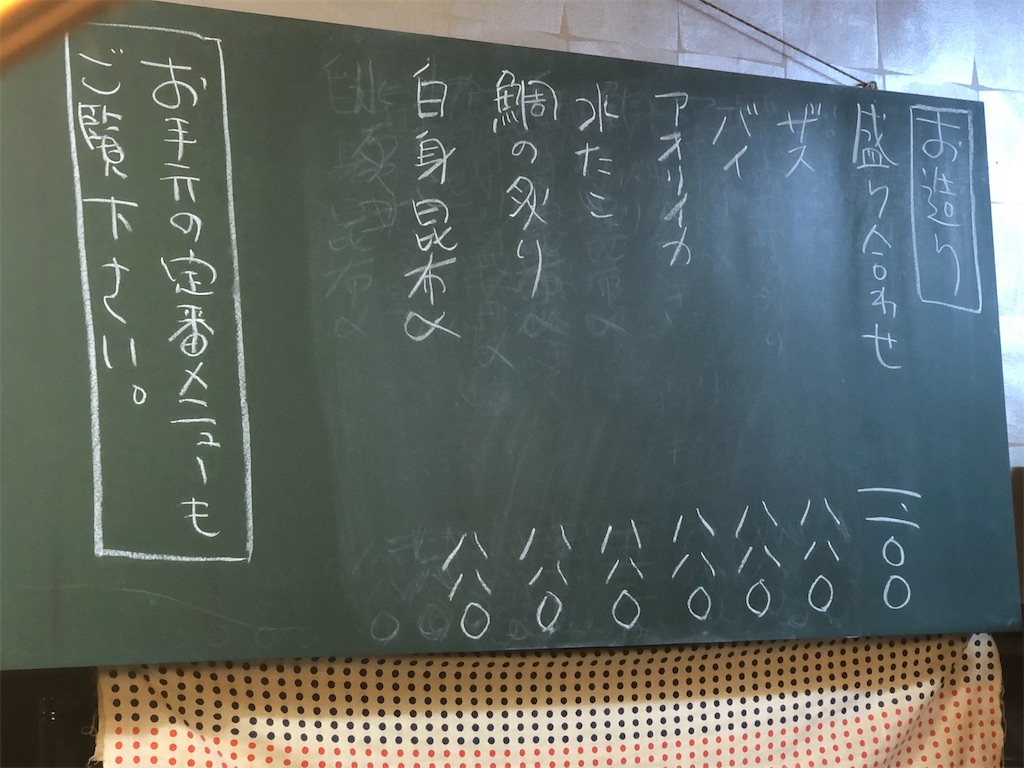 お造り
盛り合わせ 一、一〇〇
ザス 八八〇
バイ 八八〇
アオリイカ 八八〇
水たこ 八八〇
鯛の炙り 八八〇
白身昆布〆 八八〇
お手元の定番メニューも
ご覧下さい。